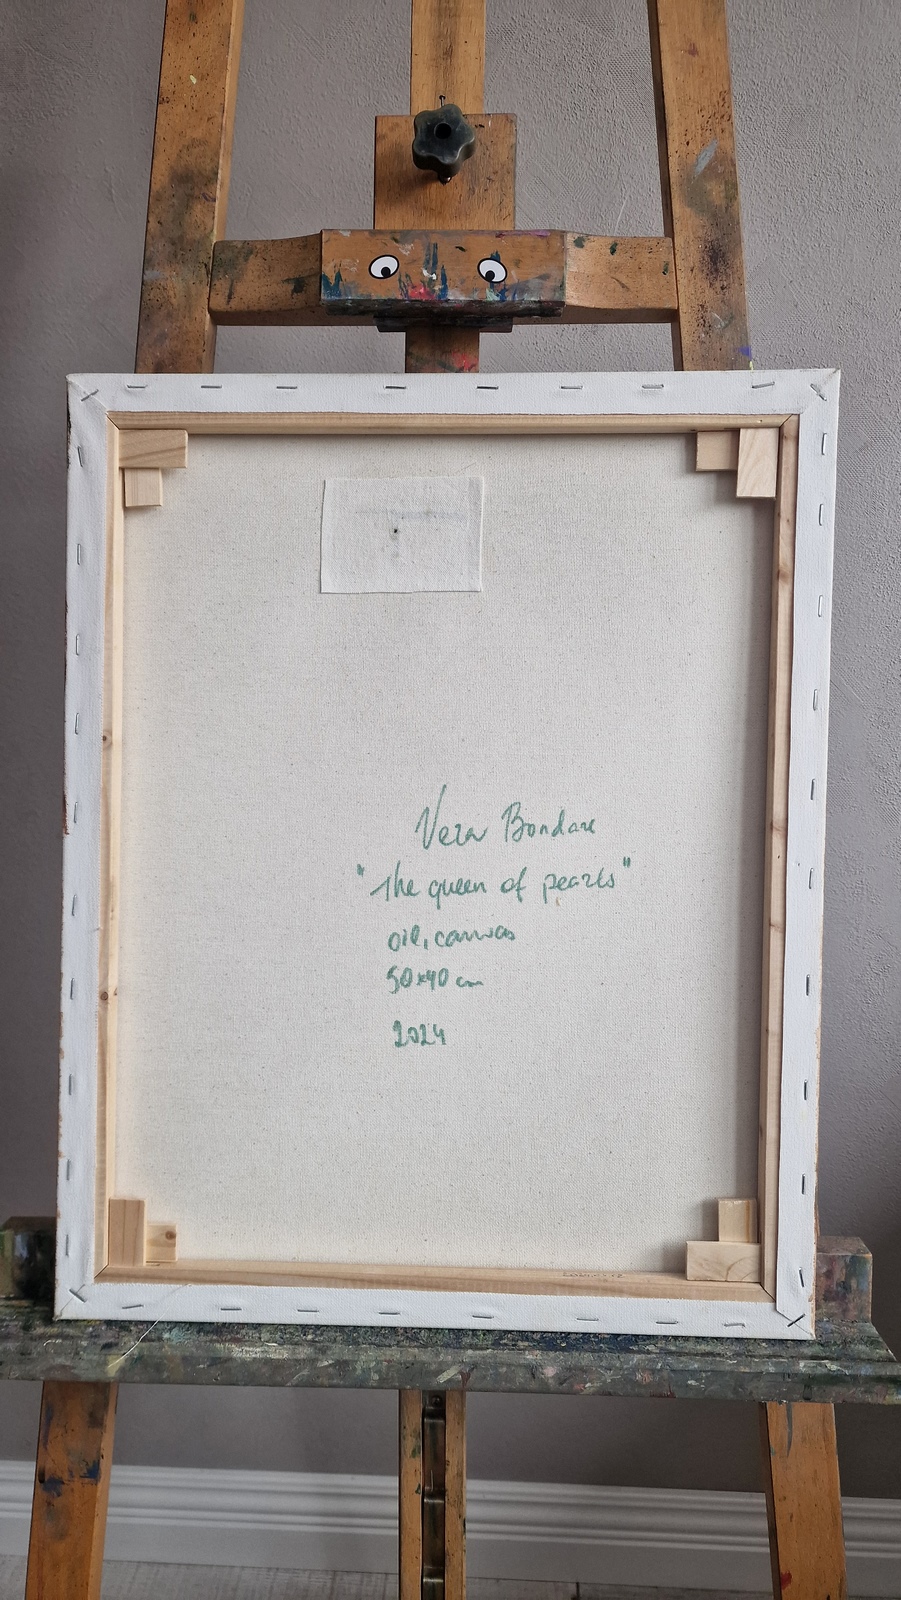 Vera Bondare
"The queen of pearls"
oil, canvas
50x40 cm
2024